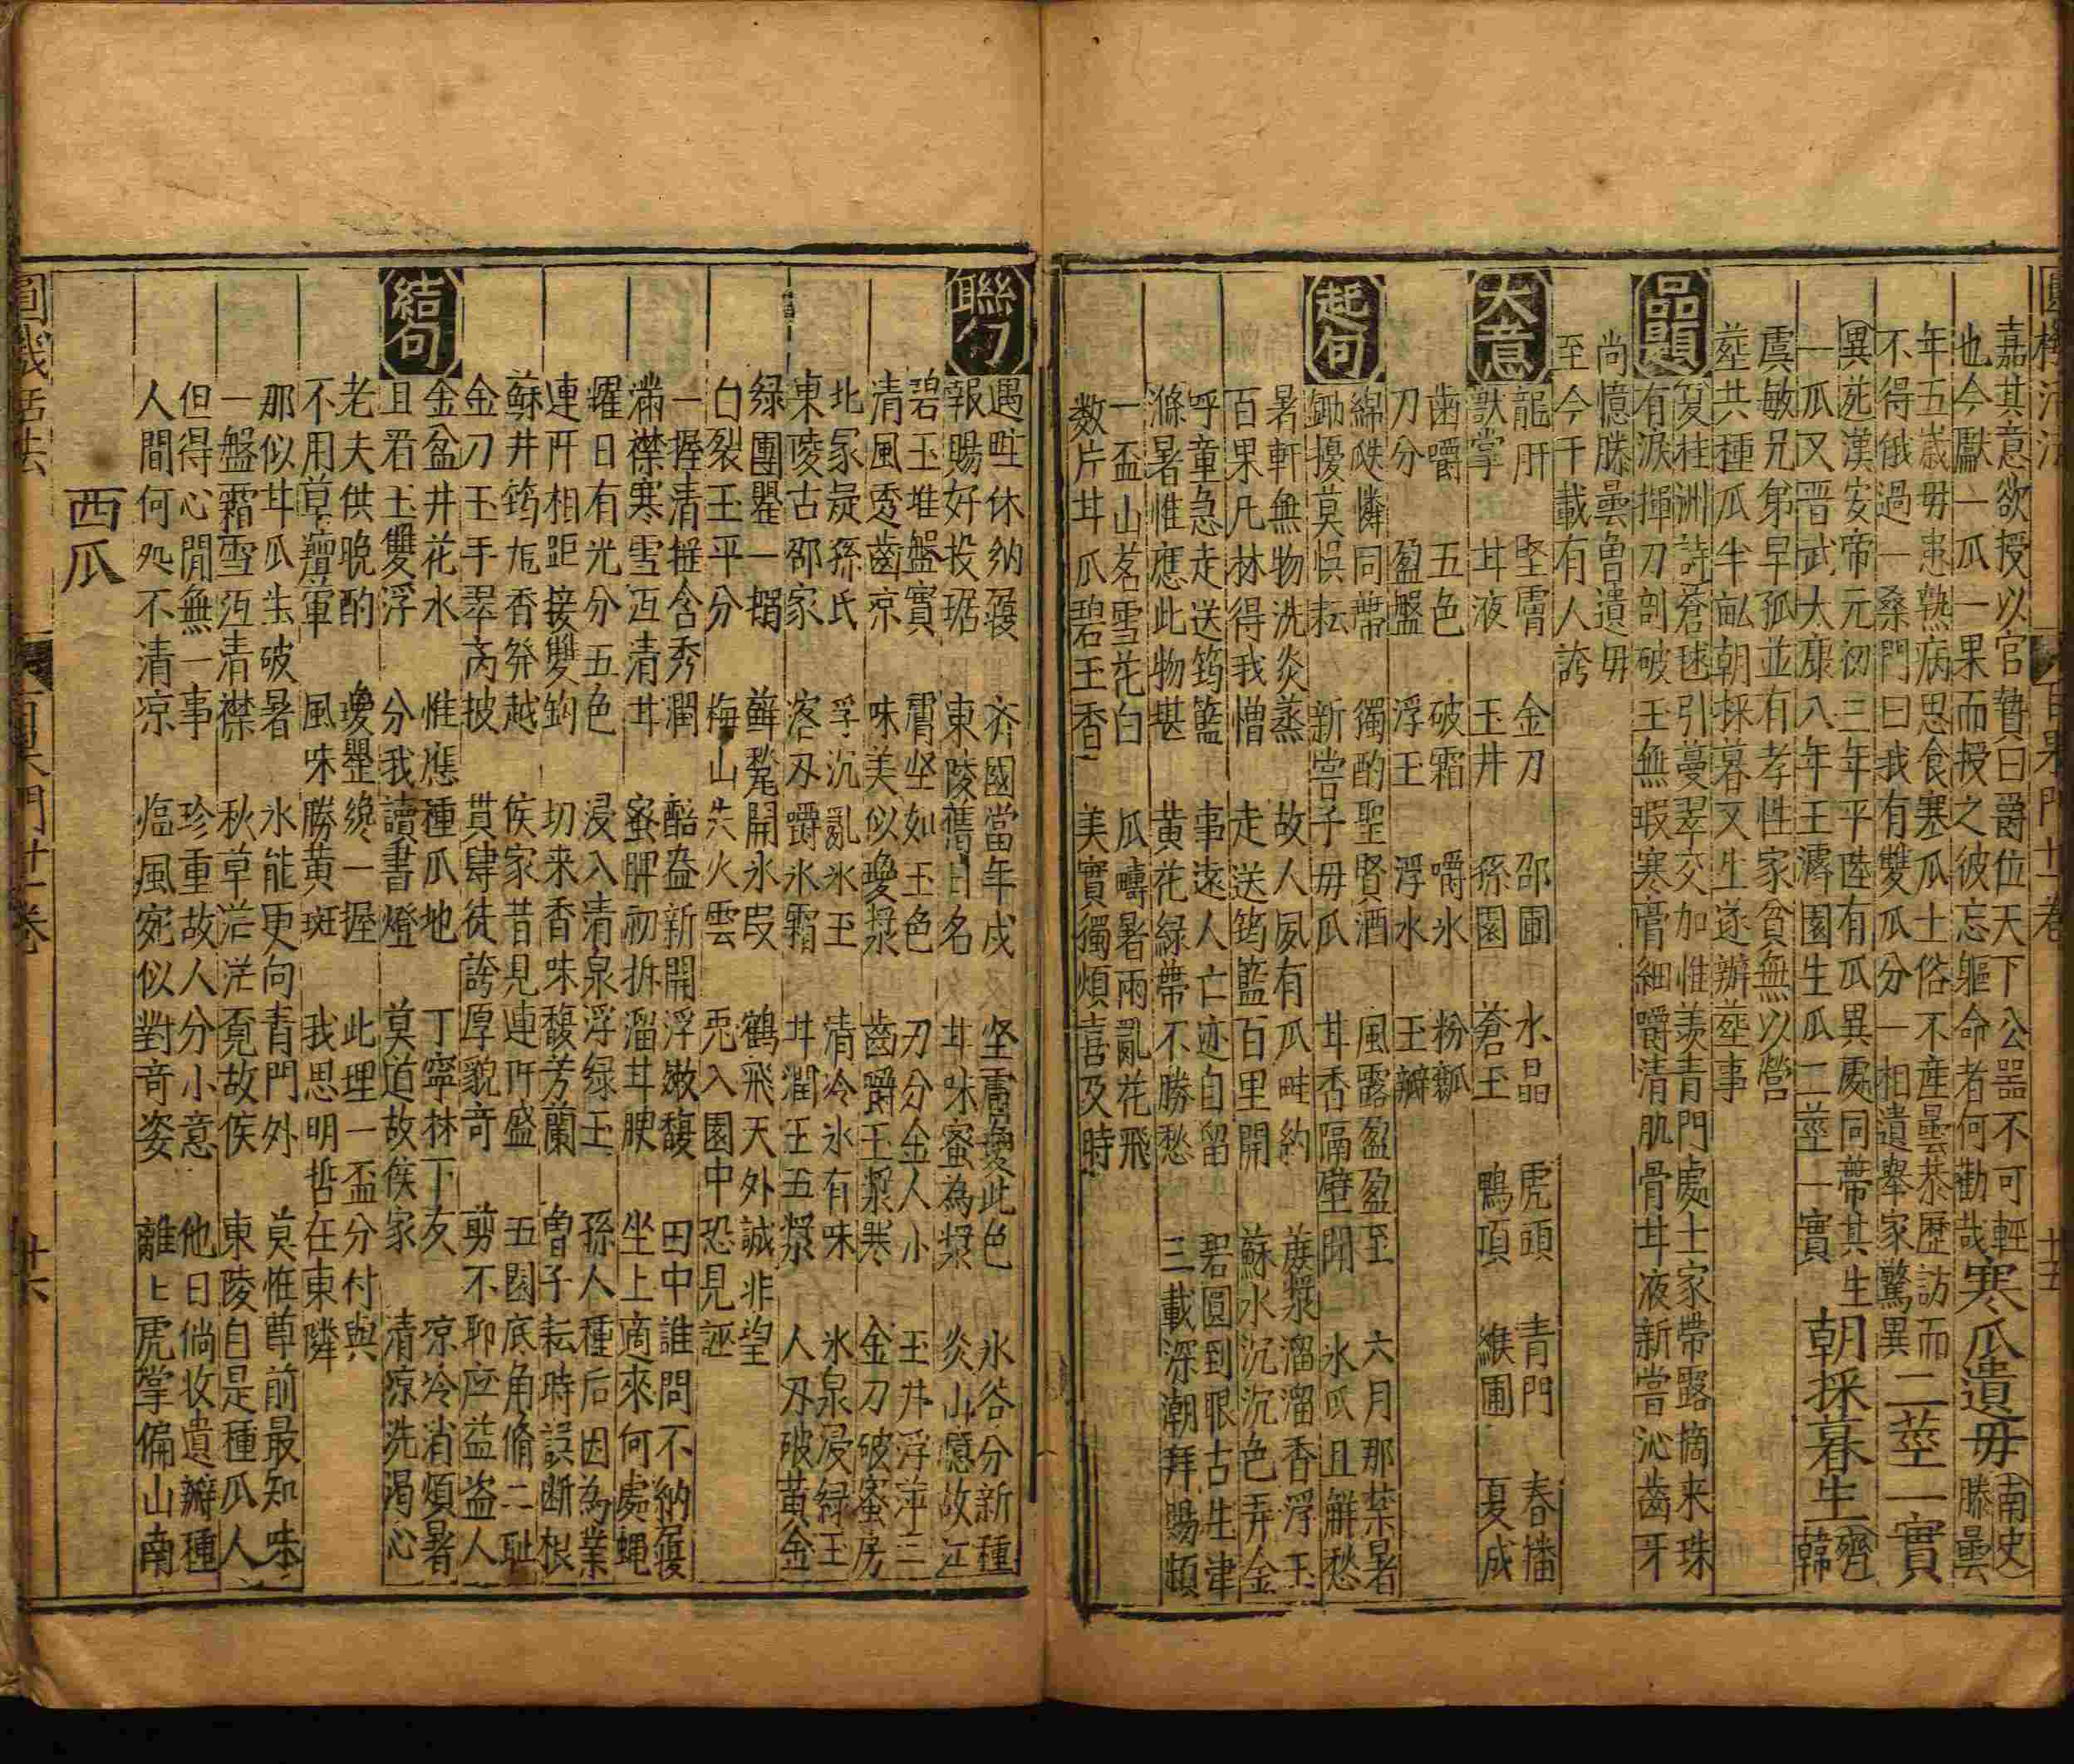 圓機活法 百果門廿一卷 廿五
嘉其意欲授以官贄曰爵位天下公器不可輕
也今獻一瓜一果而授之彼忘軀命者何勸哉寒瓜遺母南史滕曇
年五歲母患熱病思食寒瓜土俗不產曇恭歷訪而
不得俄過一桑門曰我有雙瓜分一相遺舉家驚異二莖一實
異苑漢安帝元初三年平陸有瓜異處同蒂其生
一瓜又晋武大康八年王濬園生瓜二莖一實朝採暮生齊韓
虞敏兄弟早孤並有孝性家貧無以營
塟共種瓜半畝朝採暮又生遂辦塟事
品題
夏桂洲詩蒼毬引蔓翠交加惟羨青門處士家帶露摘来珠
有淚揮刀剖破玉無瑕寒膏細嚼清肌骨甘液新嘗沁齒牙
尚憶滕曇魯遺母
至今千載有人誇
大意
龍肝 堅膚 金刀 邵圃 水晶 虎頭 青門 春播
獸掌 甘液 玉井 孫園 蒼玉 鴨項 緱圃 夏成
齒嚼 五色 破霜 嚼氷 粉瓤
刀分 盈盤 浮玉 浮水 玉瓣
起句
綿瓞憐同蒂 獨酌聖賢酒 風露盈盈至 六月那禁暑
鋤擾莫悮耘 新嘗子母瓜 甘香隔壁聞 氷瓜且觧愁
暑軒無物洗炎蒸 故人夙有瓜畦約 蔗漿溜溜香浮玉
百果凡林得我憎 走送筠籃百里開 蘇水沉沉色弄金
呼童急走送筠籃 事遠人亡迹自留 碧圓到眼古生津
滌暑惟應此物堪 黄花緑蒂不勝愁 三載深潮拜賜頻
一盃山茗雪花白 瓜疇暑雨亂花飛
数片甘瓜碧玉香 美實獨煩喜及時
聯句
遇畦休納履 齊國當年戍 坚膚變此色 氷谷分新種
報賜好投琚 東陵舊日名 甘味蜜為漿 炎山憶故江
碧玉堆盤實 膚坚如玉色 刃分金人小 玉井浮萍三
清風透齒凉 味美似瓊漿 齒嚼玉漿寒 金刀破蜜房
北冢疑孫氏 浮沉亂氷玉 清冷氷有味 氷泉浸緑玉
東陵古邵家 客刃嚼氷霜 甘潤玉五漿 人刃破黄金
緑團瞿一捐 蘚髡開氷叚 鶴飛天外誠非望
白裂玉平分 梅山失火雲 兎入園中恐見誣
一握清揰含秀潤 醅盎新開浮嫩馥 田中誰問不納履
滿襟寒雪沍清甘 蜜脾初拆溜甘腴 坐上適來何處蝇
耀日有光分五色 浸入清泉浮緑玉 孫人種后因為業
連阡相距接雙鈎 切来香味馥芳蘭 曽子耘時誤断根
蘇井筠巵香発越 侯家昔見連阡盛 五園底角脩二耻
金刀玉手翠芮披 貫肆徒誇厚貌竒 剪不耶庄益盗人
結句
金盆井花水 惟應種瓜地 丁寧林下友 凉冷消煩暑
且君玉雙浮 分我讀書燈 莫道故侯家 清凉洗渴心
老夫供晩酌 瓊罍纔一握 此理一盃分付與
不用草癉軍 風味勝黄斑 我思明哲在東隣
那似甘瓜生破暑 氷能更向青門外 莫惟尊前最知味
一盤霜雪沍清襟 秋草茫茫覓故侯 東陵自是種瓜人
但得心閒無一事 珍重故人分小意 他日倘收遺瓣種
人間何処不清凉 臨風宛似對竒姿 離匕虎掌偏山南
西瓜
圓機活法 百果門廿一卷 廿六